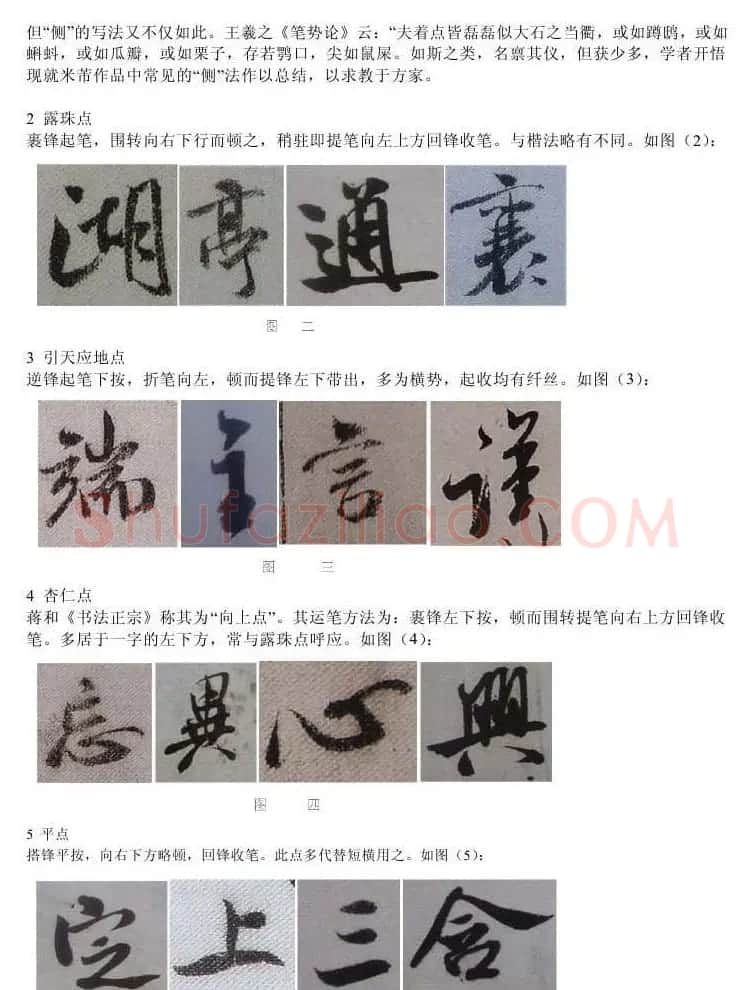 但“侧”的写法又不仅如此。王羲之《笔势论》云：“夫着点皆磊磊似大石之当衢，或如蹲鸱，或如
蝌蚪，或如瓜瓣，或如栗子，存若鹗口，尖如鼠屎。如斯之类，名禀其仪，但获少多，学者开悟
现就米芾作品中常见的“侧”法作以总结，以求教于方家。
2 露珠点
裹锋起笔，围转向右下行而顿之，稍驻即提笔向左上方回锋收笔。与楷法略有不同。如图（2）：
湖 亭 通 裹
图 二
3 引天应地点
逆锋起笔下按，折笔向左，顿而提锋左下带出，多为横势，起收均有纤丝。如图（3）：
端 主 言 谨
Shufaziliao.COM
图 三
4 杏仁点
蒋和《书法正宗》称其为“向上点”。其运笔方法为：裹锋左下按，顿而围转提笔向右上方回锋收
笔。多居于一字的左下方，常与露珠点呼应。如图（4）：
忘 異 心 興
图 四
5 平点
搭锋平按，向右下方略顿，回锋收笔。此点多代替短横用之。如图（5）：
定 上 三 含